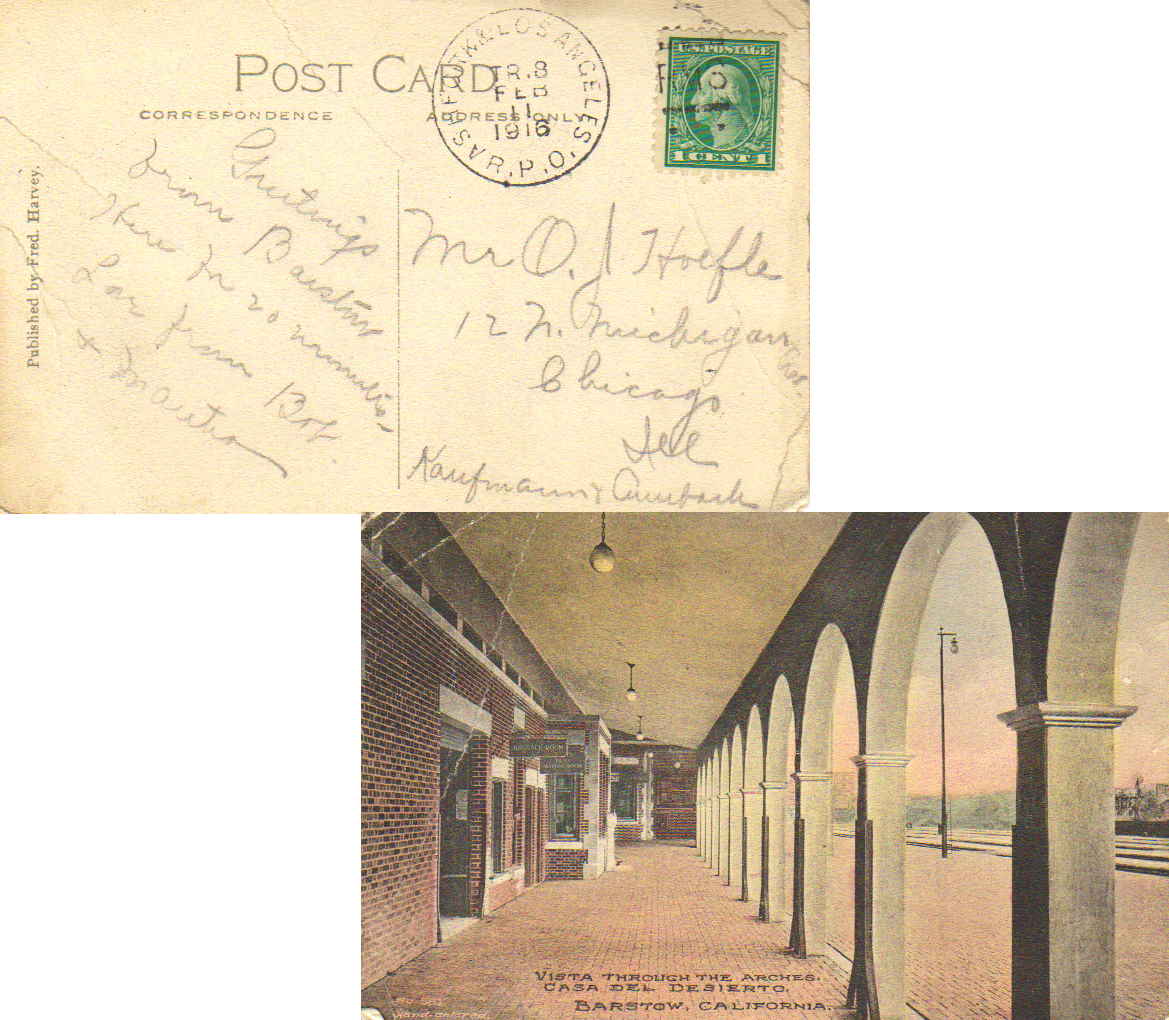 POST CARD
CORRESPONDENCE
ADDRESS ONLY
ASH FORK & LOS ANGELES.
TR.8
FEB
11
1916
R.P.O.
U.S. POSTAGE
1 CENT 1
Published by Fred. Harvey.
Greetings
from Barstow
Here for 20 minutes-
Love from Bob.
+
Mr O. J Hoefle
12 N. Michigan
Chicago
Ill
Kaufmann &
BAGGAGE ROOM
VISTA THROUGH THE ARCHES.
CASA DEL DESIERTO.
BARSTOW, CALIFORNIA.
Hand-colored.